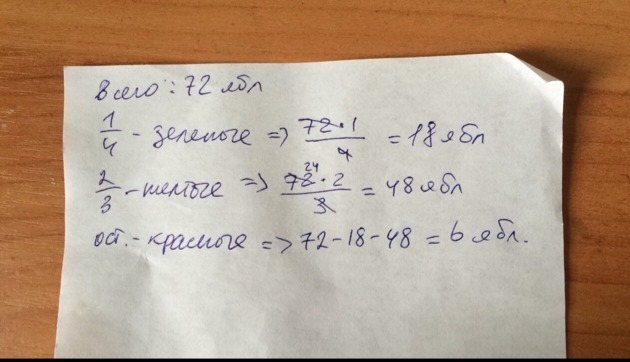 Всего: 72 ябл
1/4 - зеленые => 72·1/4 = 18 ябл
2/3 - желтые => 72·2/3 24 = 48 ябл
ост. - красные => 72-18-48 = 6 ябл.